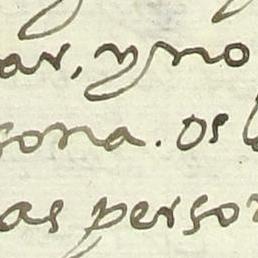 ar, y no
sona. os l
as person